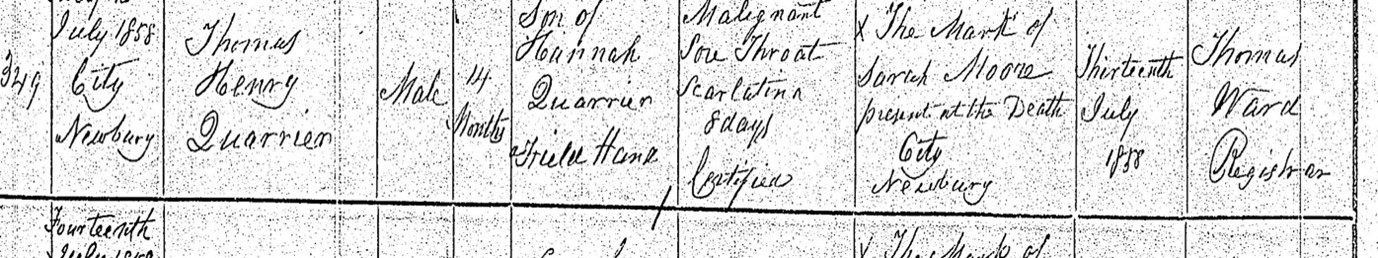 349
July 1858
City
Newbury
Thomas
Henry
Quarrier
Male
14
Months
Son of
Hannah
Quarrier
Field Hand
Malignant
Sore Throat
Scarlatina
8 days
Certified
X The Mark of
Sarah Moore
present at the Death
City
Newbury
Thirteenth
July
1858
Thomas
Ward
Registrar
Fourteenth
July
X The Mark of